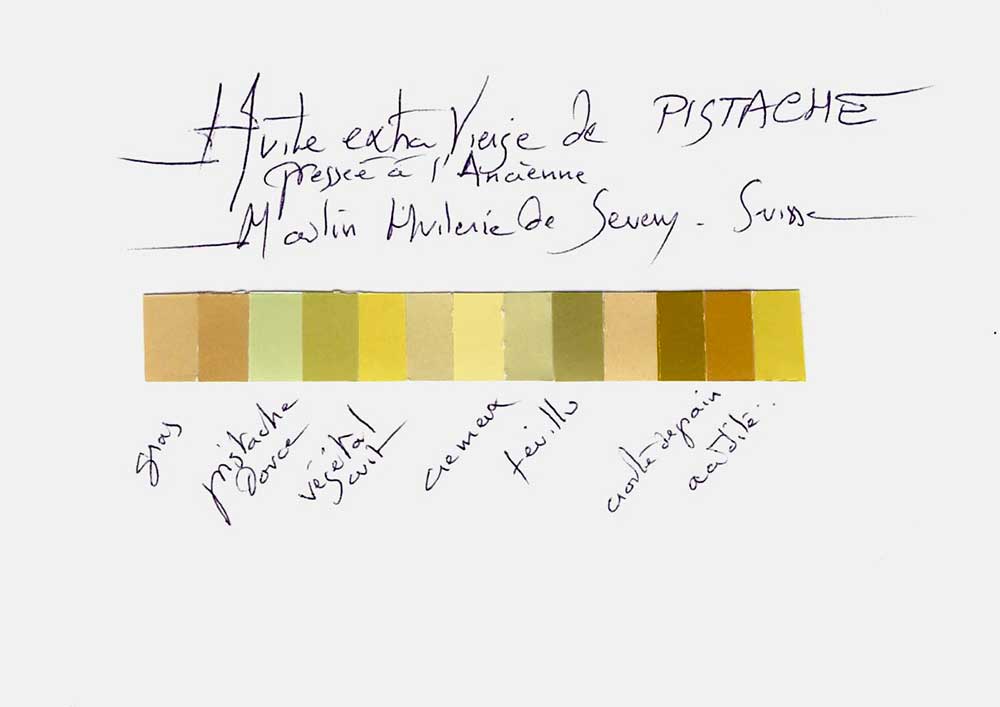 Huile extra Vierge de PISTACHE
pressée à l'Ancienne
Moulin Huilerie de Severy - Suisse
gras
pistache
douce
végétal
cuit
cremeux
feuillu
croûte de pain
acidité